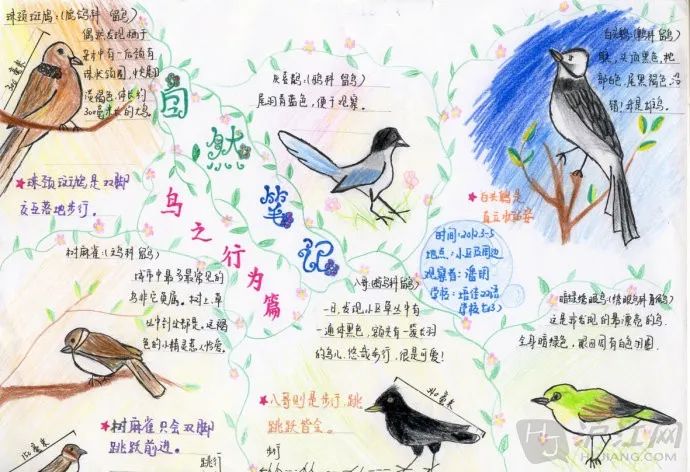 珠颈斑鸠：(鸠鸽科 留鸟)
偶然发现栖于
后颈有
珠状领圈，
淡褐色，体长约
300毫米的大鸟。
300毫米
★珠颈斑鸠是双脚
交互落地步行。
自然笔记
鸟之行为篇
灰喜鹊：(鸦科 留鸟)
尾羽青蓝色，便于观察。
白头鹎：(鹎科 留鸟)
头顶黑色，枕
部白色，尾黑褐色，没
错！就是雄鸟。
★白头鹎是
直立
时间：2012.3-5
地点：小区及周边
观察者：潘玥
学校：培佳双语
学校
树麻雀：(文鸟科 留鸟)
城市中最多最常见的
鸟非它莫属。树上、草
丛中到处都是，这褐
色的小精灵惹人怜爱。
★树麻雀只会双脚
跳跃前进。
150毫米
跳行
八哥(椋鸟科 留鸟)
一日，发现小区草丛中有
一通体黑色，额头有一簇
的鸟儿，悠哉步行，很是可爱！
★八哥则是步行、跳
跃皆会。
步行
毫米
暗绿绣眼鸟(绣眼鸟科 留鸟)
这是我发现的最漂亮的鸟。
全身暗绿色，眼周有白色羽圈。
沪江网
HUJIANG.COM